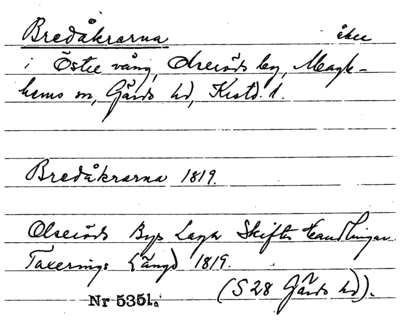 Bredåkrarna åker
i Östre vång, Olseröds by, Magle-
hems sn, Gärds hd, Krstd. l.
Bredåkrarna 1819.
Olseröds Bys Laga Skiftes Handlingar
Taxerings Längd 1819.
(S 28 Gärds hd).
Nr 5351.